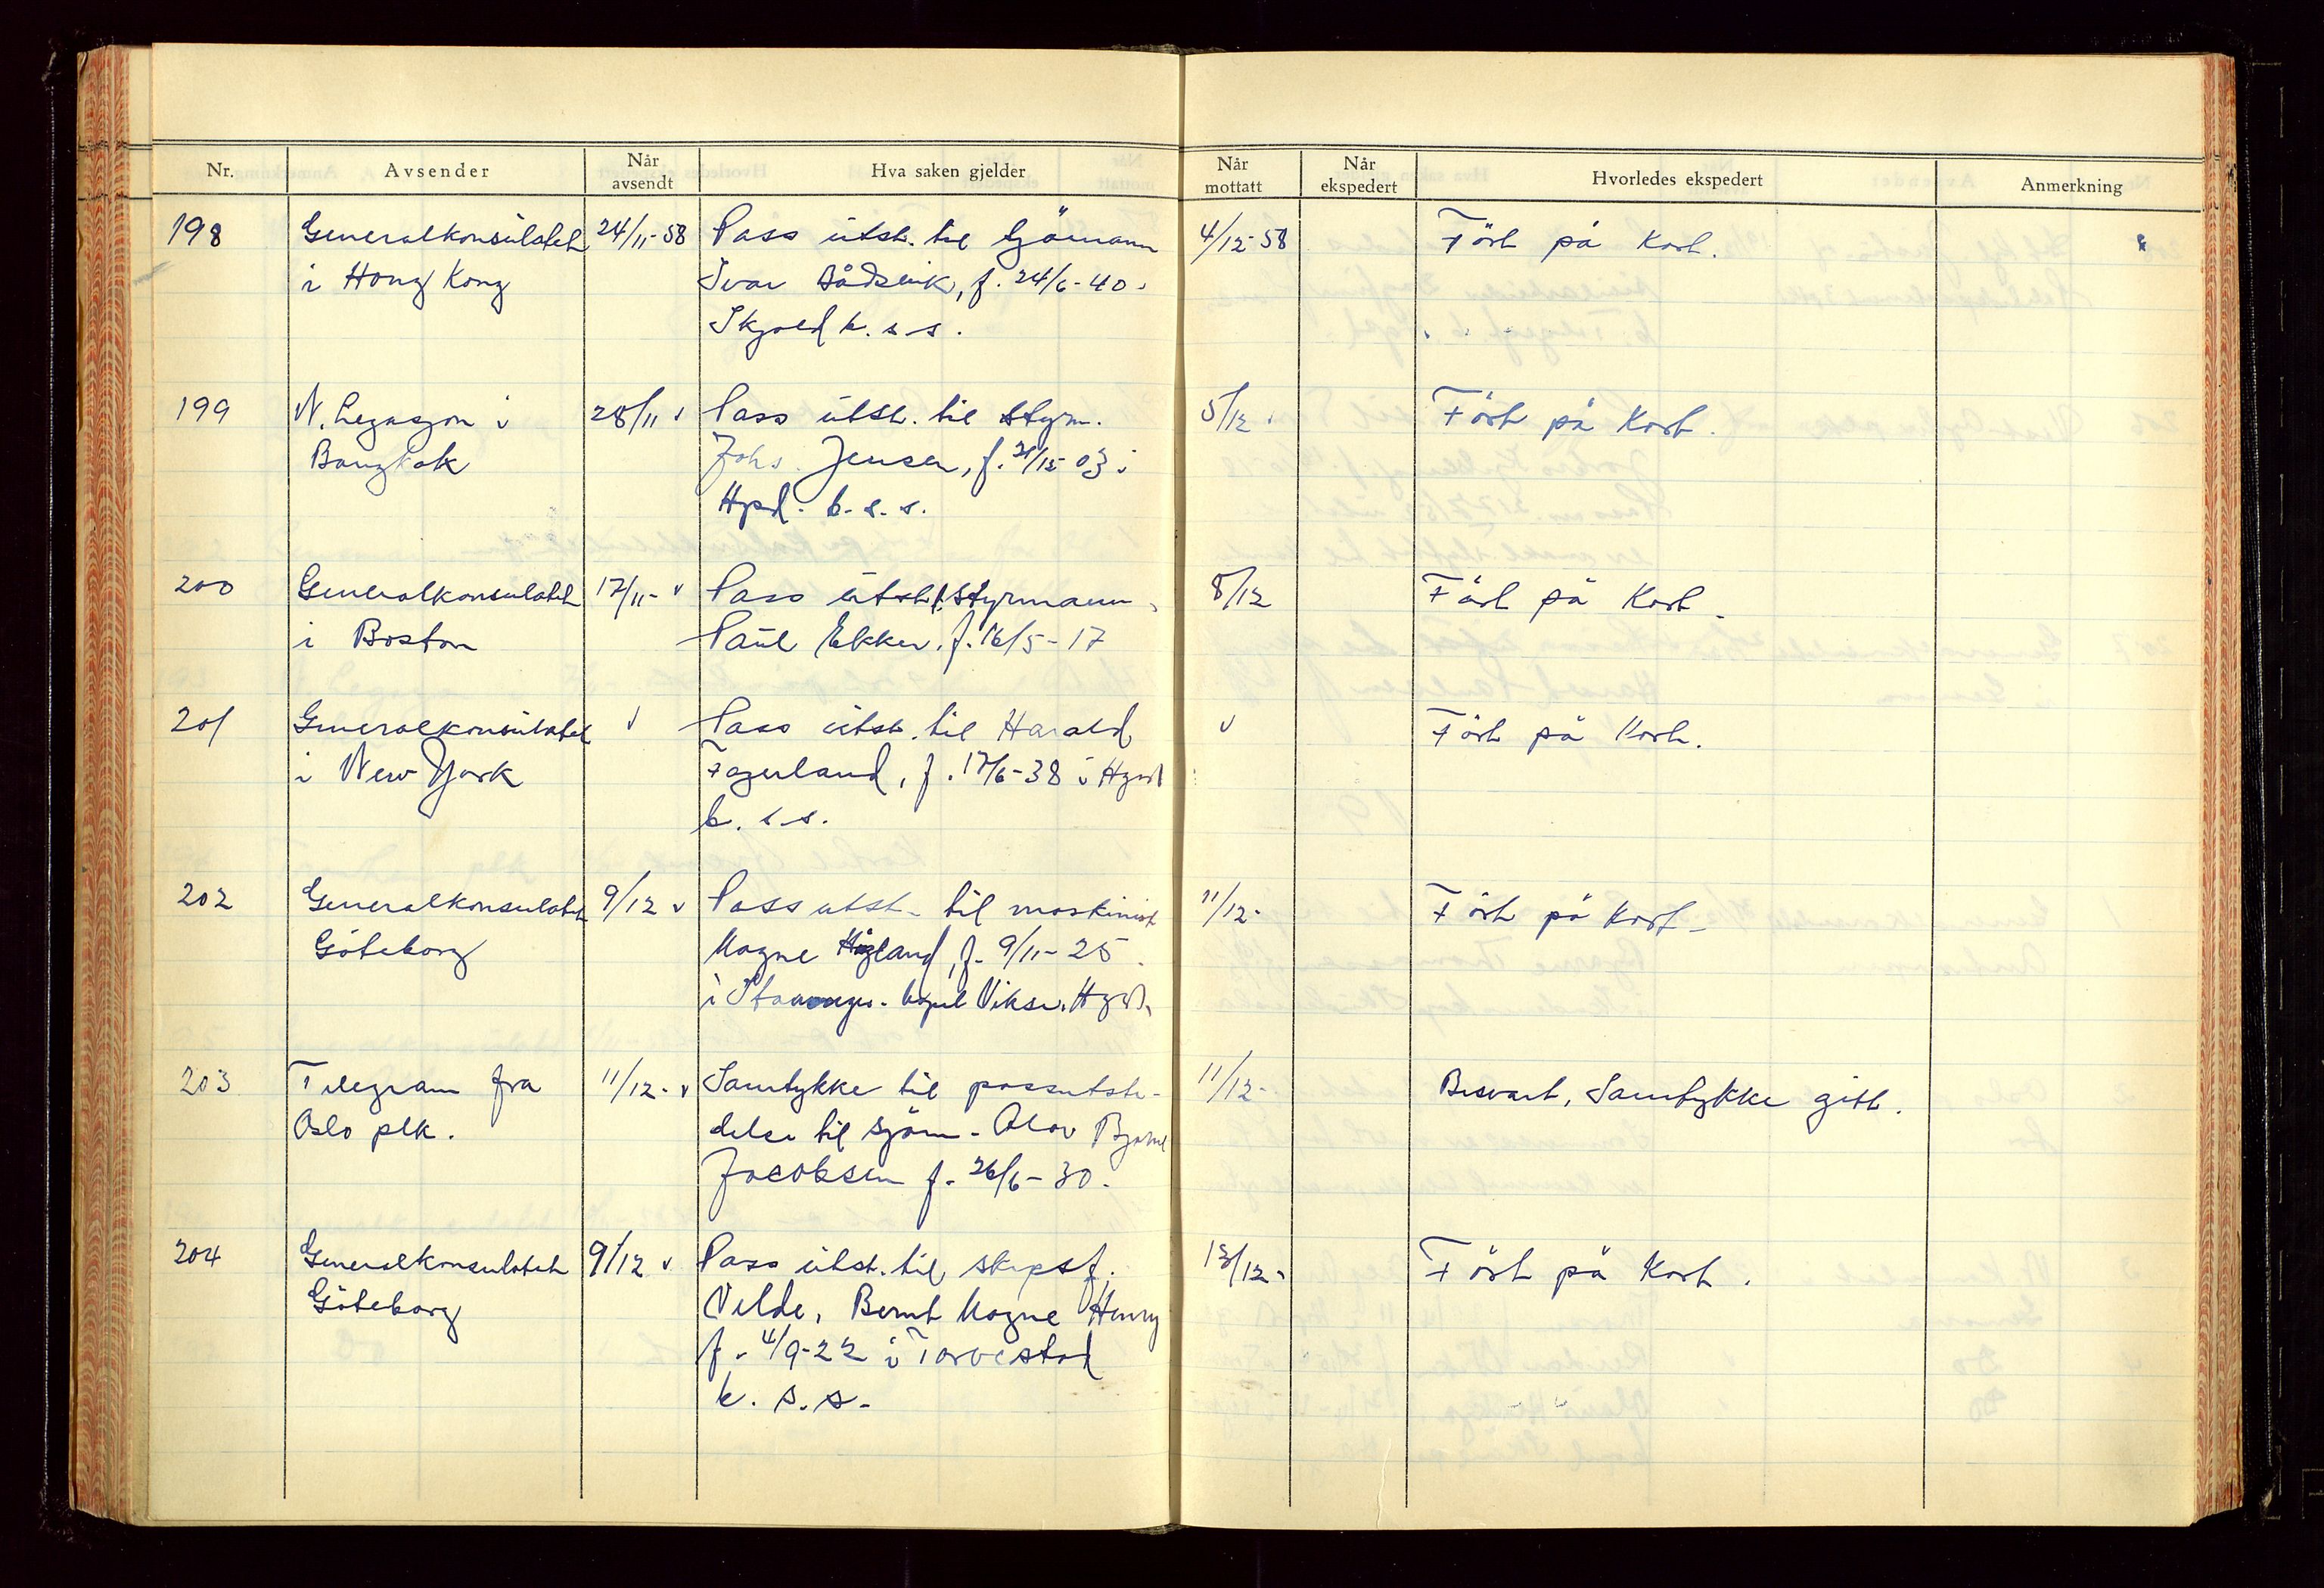 Nr.
Avsender
Når avsendt
Hva saken gjelder
Når mottatt
Når ekspedert
Hvorledes ekspedert
Anmerkning
198 Generalkonsulatet 24/11-58 Pass utst. til sjömann 4/12-58 Fört på Kort.
i Hong Kong Ivar Bådsvik, f. 24/6-40 i
Skjold b. s. s.
199 N. Legasjon i 28/11 v Pass utst. til styrm. 5/12 Fört på Kort.
Bangkok Johs. Jensen, f. 21/12-03 i
Hgsd. b. s. s.
200 Generalkonsulatet 17/11- v Pass utst. t. styrmann 8/12 Fört på Kort.
i Boston Paul Ekker. f. 16/5-17
201 Generalkonsulatet v Pass utst. til Harald v Fört på Kort.
i New York Fagerland, f. 17/6-38 i Hgsd
b. s. s.
202 Generalkonsulatet 9/12 v Pass utst. til maskinist 11/12- Fört på Kort-
Göteborg Magne f. 9/11-25
i Stavanger. Vikse. Hgsd.
203 Telegram fra 11/12- v Samtykke til passutste- 11/12- Besvart, Samtykke gitt.
Oslo plk. delse til sjöm- Olav Bjarne
Jacobsen f. 26/6-30.
204 Generalkonsulatet 9/12 v Pass utst. til skipsf. 13/12- Fört på Kort.
Göteborg Velde, Bernt Magne Henry
f. 4/9-22 i Torvestad
b. s. s.